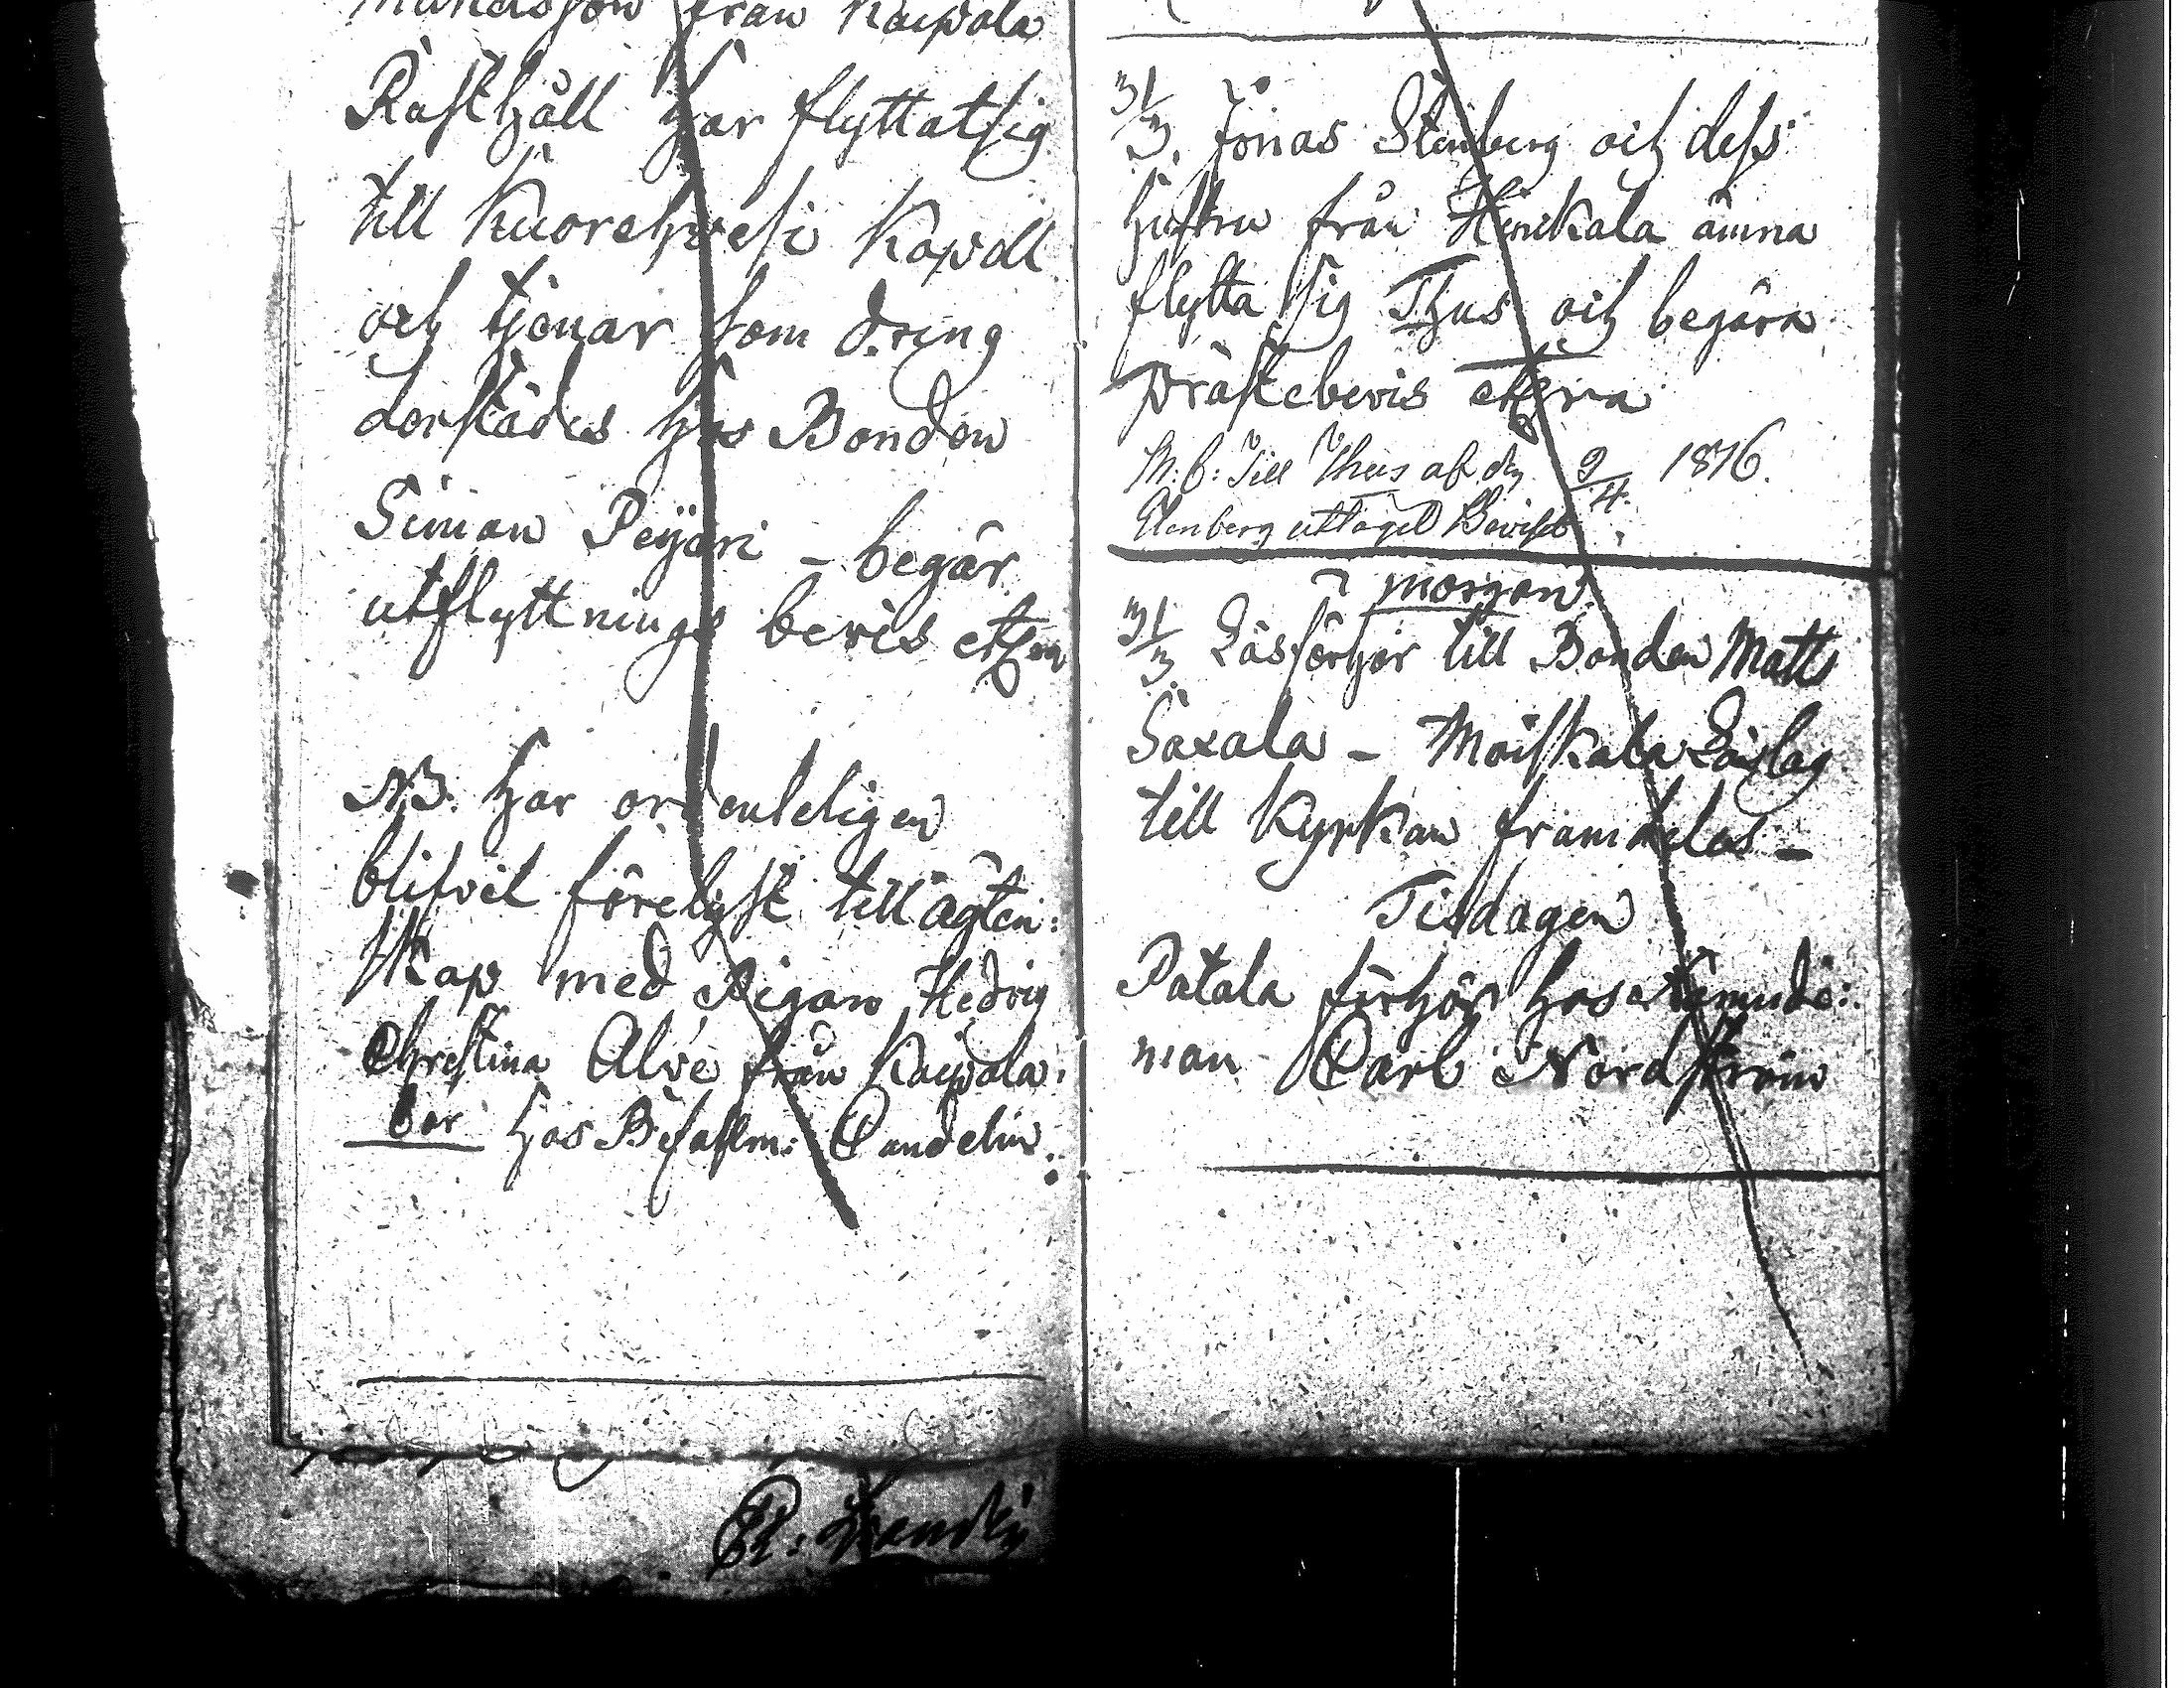 från Kaipola
Rusthåll har flyttat sig
till Kuorehvesi Kapell
och tjenar som dräng
derstädes hos Bonden
Simon Peijari - begär
utflyttnings bevis
NB. har ordenteligen
blifvit förelyst till ägten:
skap med Pigan Hedvig
Christina Alve från Kaipola.
bor hos Befallm: Candelin.
31/3. Jonas Stenberg och dess
hustru från Hinikala ämna
flytta sig Thus och begära
prästebevis
N.b: Till Thus af den 9/4. 1876.
Stenberg uttagit Beviset
i morgon
31/3. Läsförhör till Bonden Matts
Saxala - Moiskala Läslag
till Kyrkan framdeles -
Tisdagen
Patala förhör hos Nämnde:
man Carl Nordström